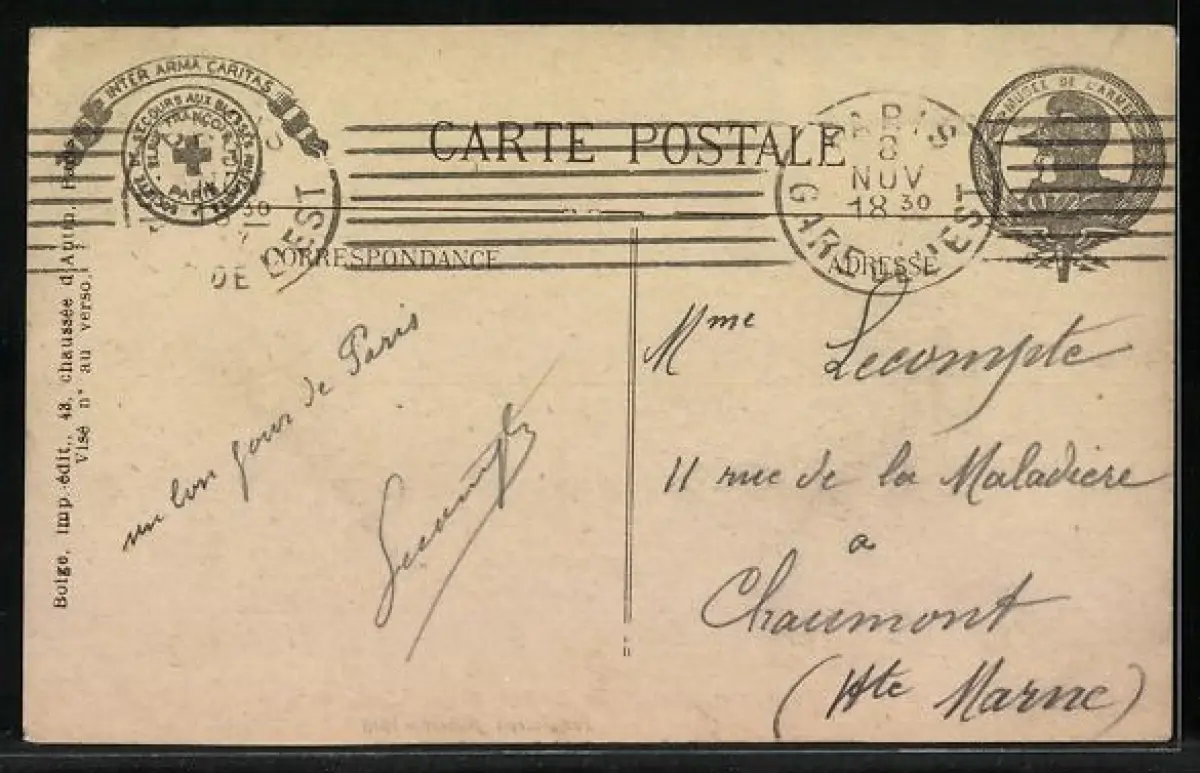 INTER ARMA CARITAS
SOCIÉTÉ DE SECOURS AUX BLESSÉS MILITAIRES
PARIS
MUSÉE DE L'ARMÉE
CARTE POSTALE
PARIS
8
NOV
18 30
GARE DE L'EST
30
DE L'EST
CORRESPONDANCE
ADRESSE
un bon jour de Paris
Lecompte
Mme Lecompte
11 rue de la Maladière
a
Chaumont
(Hte Marne)
Bolge, imp édit., 43, chaussée d'Antin, Paris
Visé n° au verso.